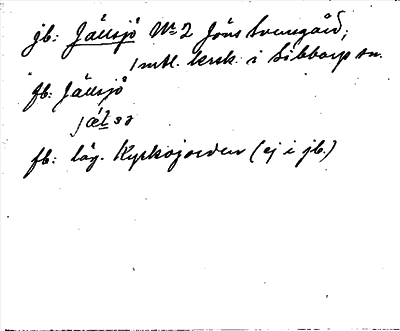 jb: Jällsjö № 2 Jöns Svensgård;
1 mtl. krsk. i Sibbarp sn.
fb: Jällsjö
fb: låg. Kyrkojorden (ej i jb.)